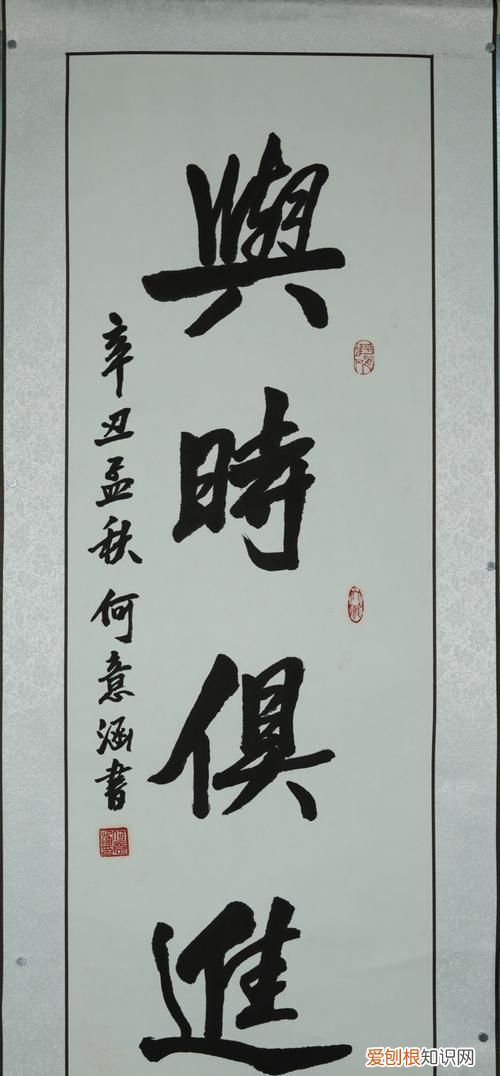 與時俱進
辛丑孟秋 何意涵書
爱刨根知识网